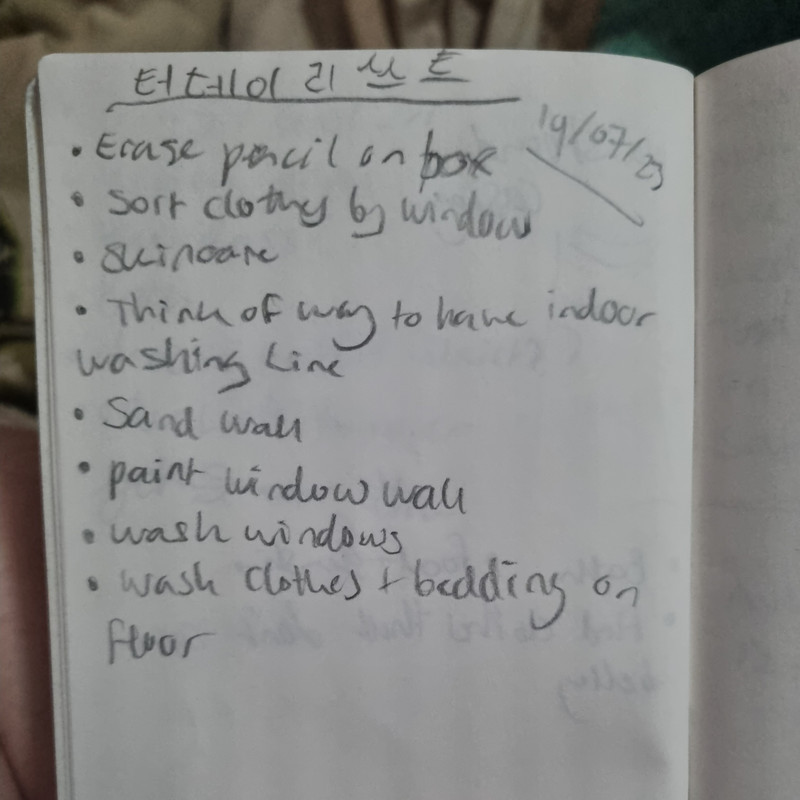 터데이 리쓰트
19/07/23
• Erase pencil on box
• Sort clothes by window
• Skincare
• Think of way to have indoor
washing line
• Sand wall
• paint window wall
• wash windows
• wash clothes + bedding on
floor